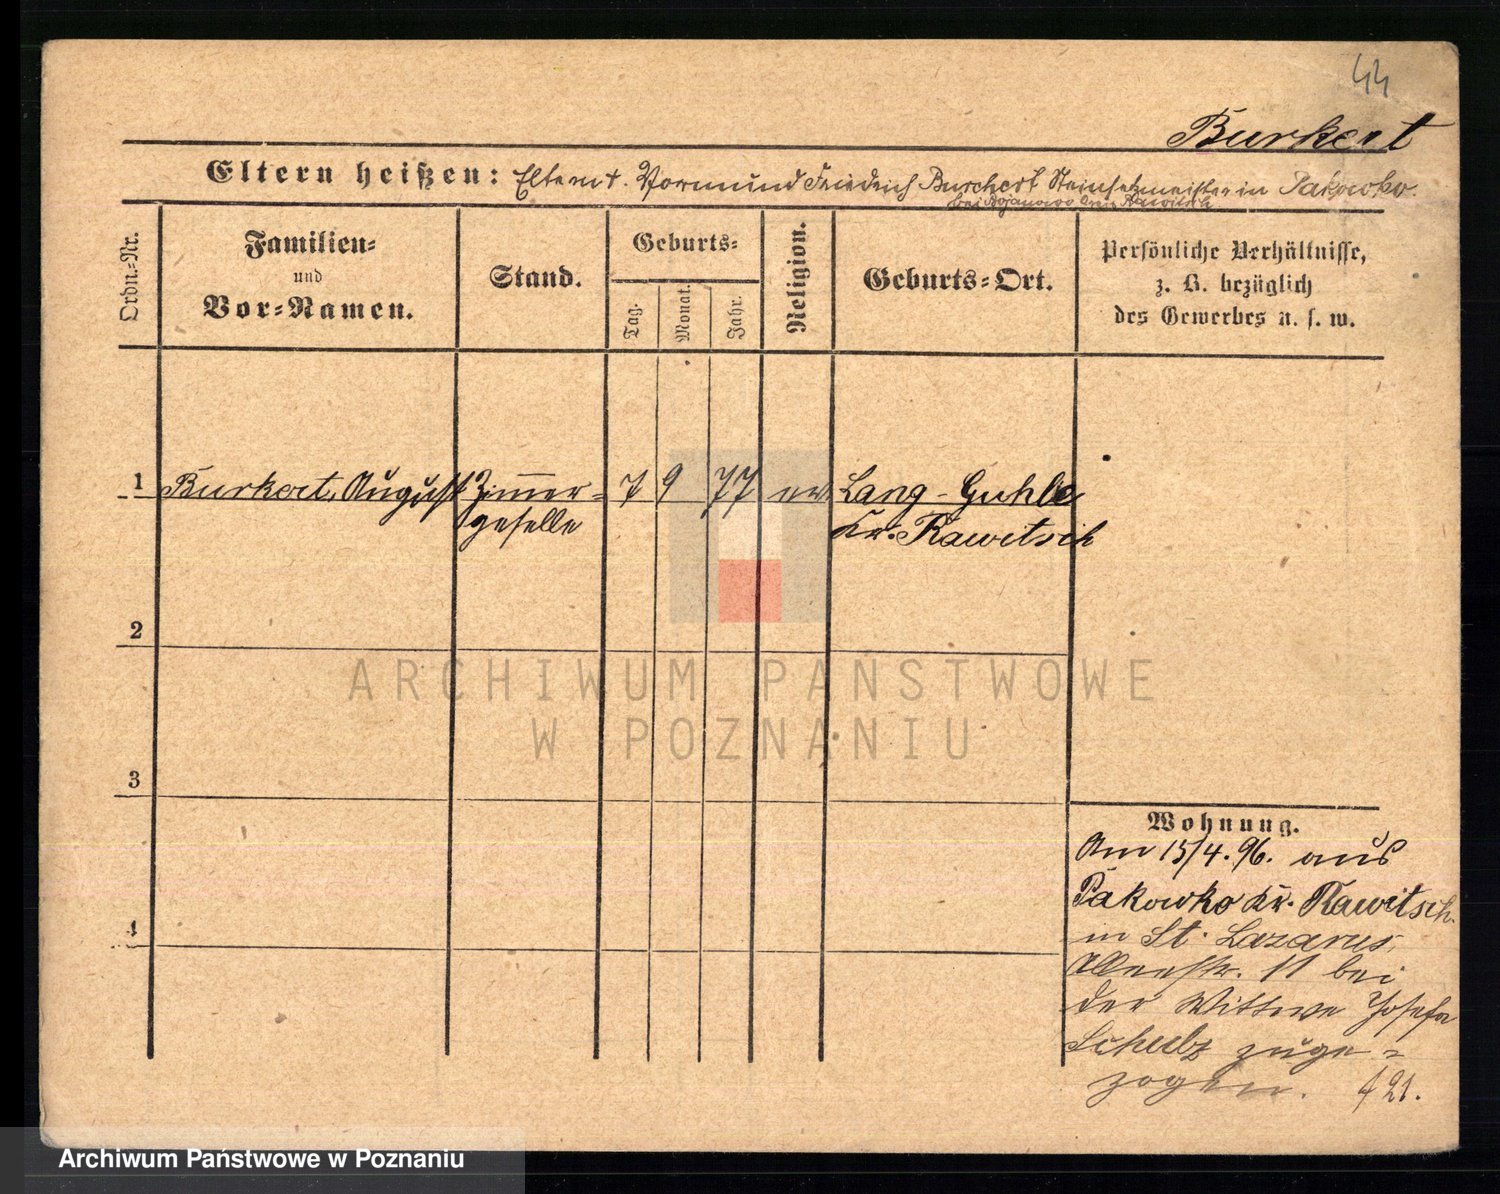 44
Burkert
Eltern heißen: Eltern †. Vormund Friedrich Burchert Steinsetzmeister in Pakowko
bei Bojanowo Kreis Rawitsch
Ordn.-Nr.
Familien-
und
Vor-Namen.
Stand.
Geburts-
Tag.
Monat.
Jahr.
Religion.
Geburts-Ort.
Persönliche Verhältnisse,
z. B. bezüglich
des Gewerbes u. s. w.
1 Burkert, August Zimmer- 7 9 77 ev. Lang-Guhle
geselle Kr. Rawitsch
2
3
4
Wohnung.
Am 15/4. 96. aus
Pakowko Kr. Rawitsch
in St. Lazarus,
Allestr. 11 bei
der Wittwe Josefa
Schulz zuge-
zogen. 421.
ARCHIWUM PAŃSTWOWE
W POZNANIU
Archiwum Państwowe w Poznaniu